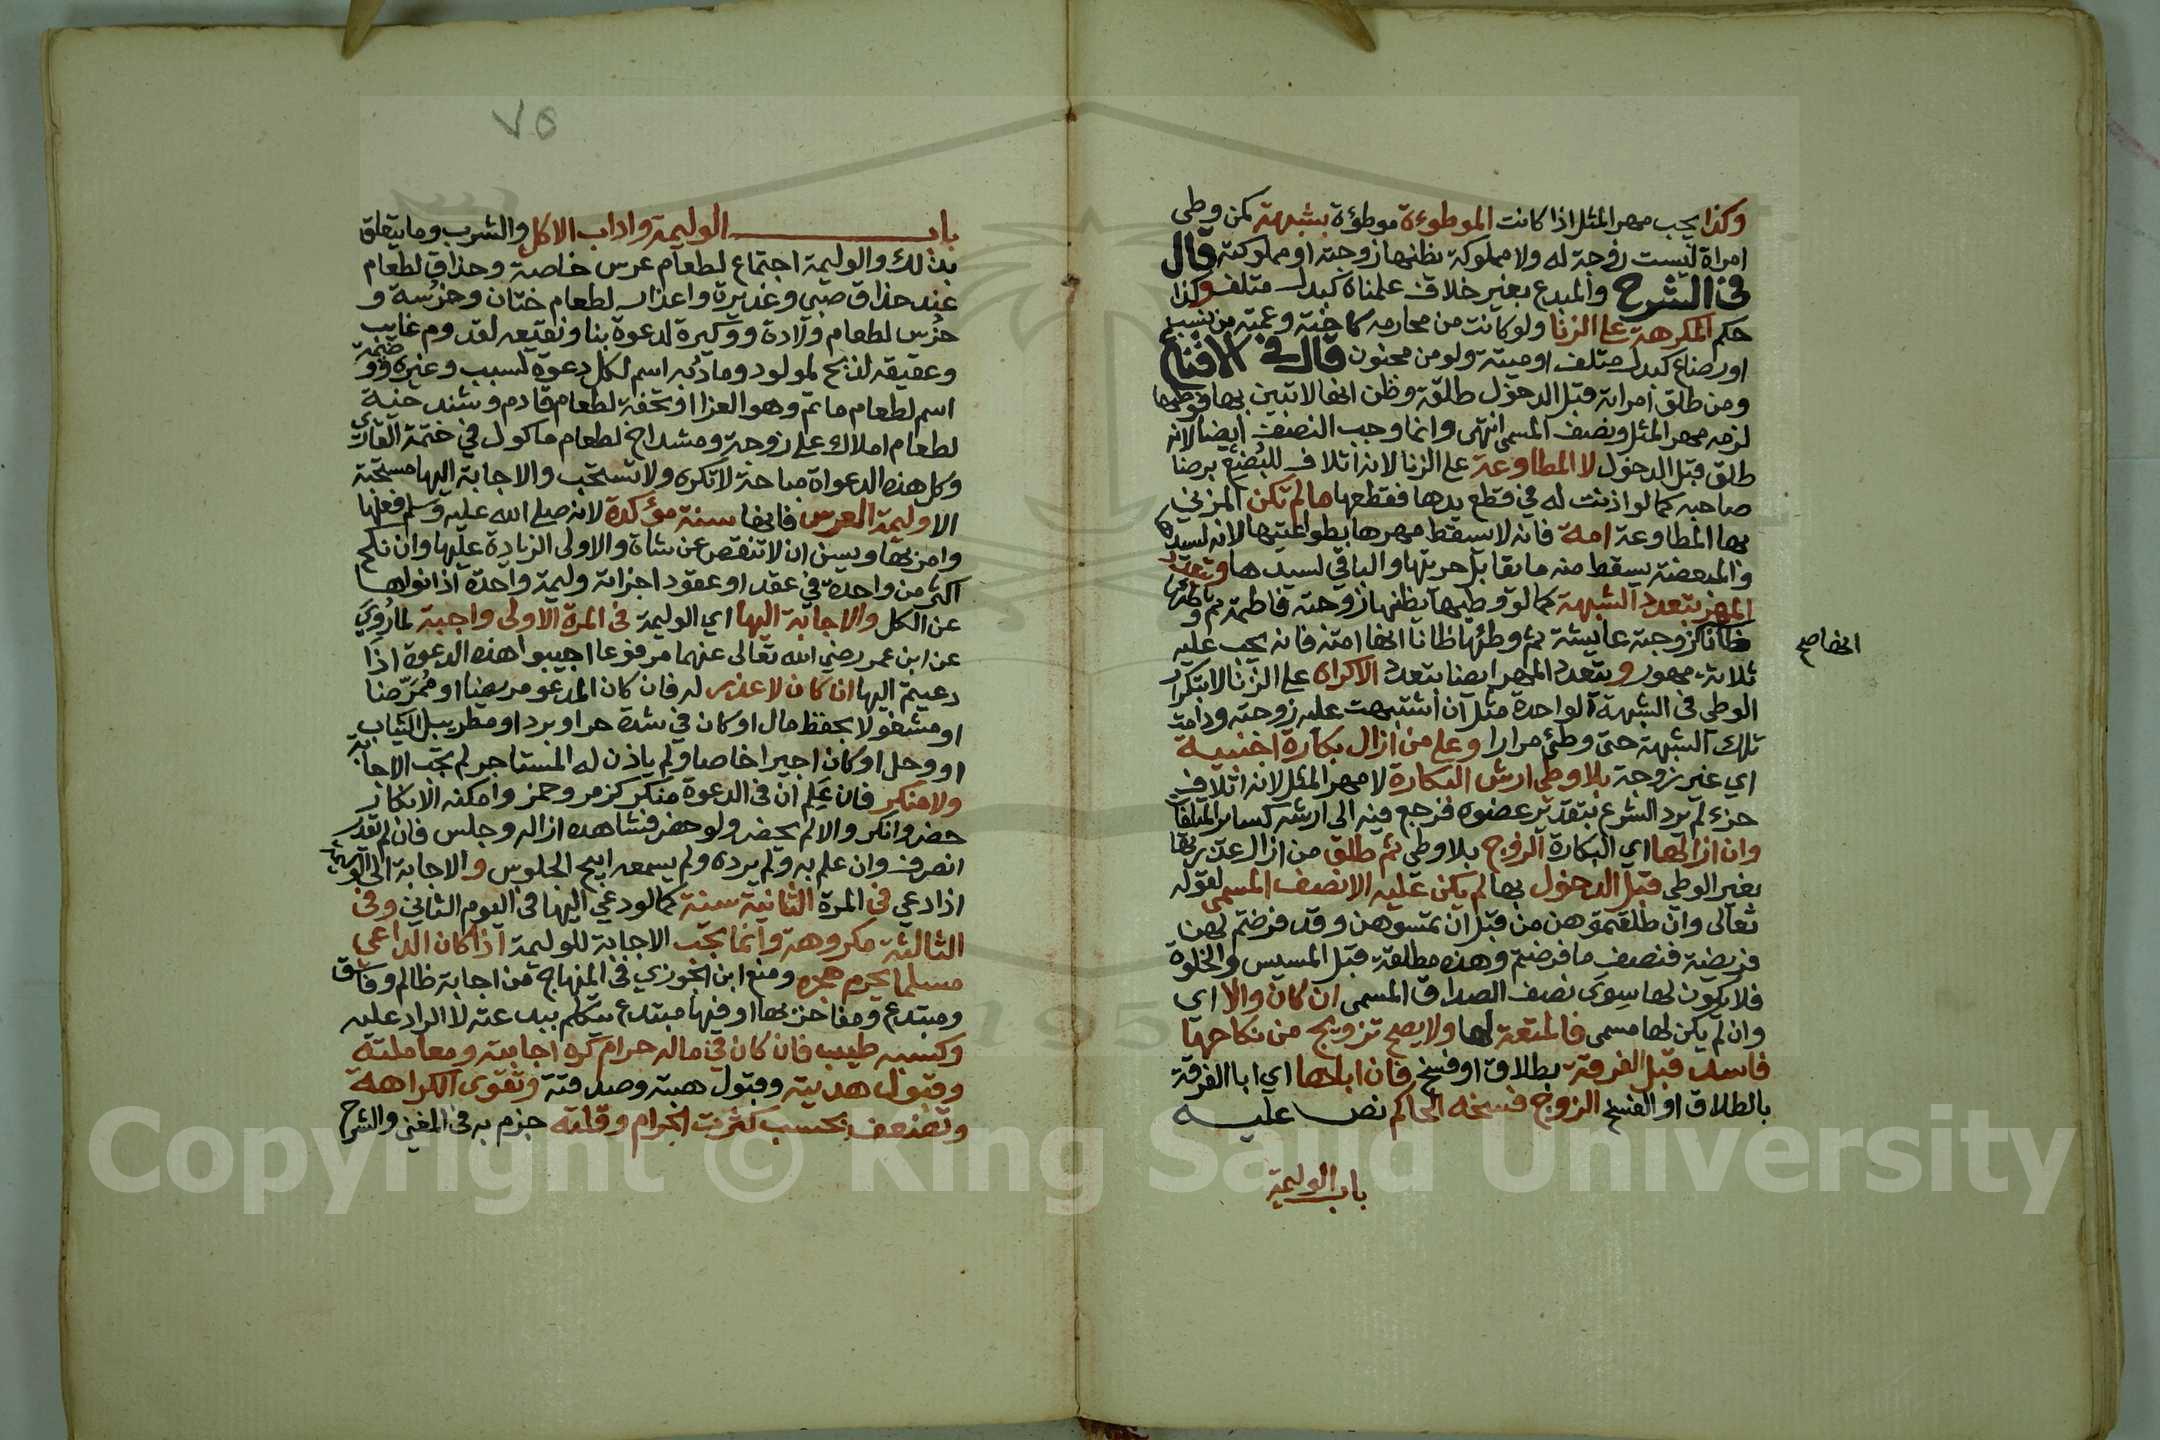 وكذا يجب مهر المثل اذا كانت الموطوءة موطؤة بشبهة كمن وطي
امراة ليست زوجة له ولا مملوكة يظنها زوجته او مملوكته قال
في الشرح والمبدع بغير خلاف علمناه كبدل متلف وكذا
حكم المكرهة على الزنا ولو كانت من محارمه كاخته وعمته من نسب
او رضاع كبدل متلف او ميتة ولو من مجنون قال في الاقناع
ومن طلق امراته قبل الدخول طلقة وظن انها لا تبين بها فوطئها
لزمه مهر المثل ونصف المسمى انتهى وانما وجب النصف ايضا لانه
طلق قبل الدخول لا المطاوعة على الزنا لانه اتلاف للبضع برضا
صاحبه كما لو اذنت له في قطع يدها فقطعها ما لم تكن المزني
بها المطاوعة امة فانه لا يسقط مهرها بطواعيتها لانه لسيدها
والمبعضة يسقط منه ما يقابل حريتها والباقي لسيدها ويتعدد
المهر بتعدد الشبهة كما لو وطيها يظنها زوجته فاطمة ثم وطئها
ظانا كزوجته عايشة ثم وطئها ظانا انها امته فانه يجب عليه
انها صح
ثلاثة مهور ويتعدد المهر ايضا بتعدد الاكراه على الزنا لا بتكرار
الوطي في الشبهة الواحدة مثل ان اشتبهت عليه زوجته ودامت
تلك الشبهة حتى وطئ مرارا وعلى من ازال بكارة اجنبية
اي غير زوجة بلا وطي ارش البكارة لا مهر المثل لانه اتلاف
جزء لم يرد الشرع بتقدير عضوه فرجع فيه الى ارشه كسائر المتلفات
وان ازالها اي البكارة الزوج بلا وطي ثم طلق من ازال عذريتها
بغير الوطي قبل الدخول بها لم يكن عليه الا نصف المسمى لقوله
تعالى وان طلقتموهن من قبل ان تمسوهن وقد فرضتم لهن
فريضة فنصف ما فرضتم وهذه مطلقة قبل المسيس والخلوة
فلا يكون لها سوى نصف الصداق المسمى ان كان والا اي
وان لم يكن لها مسمى فالمتعة لها ولا يصح تزويج من نكاحها
فاسد قبل الفرقة بطلاق او فسخ فان اباها اي ابا الفرقة
بالطلاق او الفسخ الزوج فسخه الحاكم نص عليه
باب الوليمة
٧٥
باب الوليمة واداب الاكل والشرب وما يتعلق
بذلك والوليمة اجتماع لطعام عرس خاصة وحذاق لطعام
عند حذاق صبي وعذيرة واعذار لطعام ختان وخرسة و
خرس لطعام ولادة ووكيرة لدعوة بنا ونقيعه لقدوم غايب
وعقيقه لذبح لمولود ومادبه اسم لكل دعوة لسبب وغيره ووضيمة
اسم لطعام ماتم وهو العزا او تحفة لطعام قادم وشندخية
لطعام املاك على زوجة ومشداخ لطعام ماكول في ختمة القاري
وكل هذه الدعواة مباحة لا تكره ولا تستحب والاجابة اليها مستحبة
الا وليمة العرس فانها سنة مؤكدة لانه صلى الله عليه وسلم فعلها
وامر بها ويسن ان لا تنقص عن شاة والاولى الزيادة عليها وان نكح
اكثر من واحدة في عقد او عقود اجزاته وليمة واحدة اذا نواها
عن الكل والاجابة اليها اي الوليمة في المرة الاولى واجبة لما روي
عن ابن عمر رضي الله تعالى عنهما مرفوعا اجيبوا هذه الدعوة اذا
دعيتم اليها ان كان لا عذر له فان كان المدعو مريضا او ممرضا
او مشغولا بحفظ مال او كان في شدة حر او برد او مطر يبل الثياب
او وحل او كان اجيرا خاصا ولم ياذن له المستاجر لم تجب الاجابة
ولا منكر فان علم ان في الدعوة منكر كزمر وخمر وامكنه الانكار
حضر وانكر والا لم يحضر ولو حضر فشاهده ازاله وجلس فان لم يقدر
انصرف وان علم به ولم يره ولم يسمعه ابيح الجلوس والاجابة الى الوليمة
اذا دعي في المرة الثانية سنة كما لو دعي اليها في اليوم الثاني وفي
الثالثة مكروهة وانما تجب الاجابة للوليمة اذا كان الداعي
مسلما يحرم هجره ومنع ابن الجوزي في المنهاج من اجابة ظالم وفاسق
ومبتدع ومفاخر بها او فيها مبتدع يتكلم ببدعته لا الراد عليه
وكسبه طيب فان كان في ماله حرام كره اجابته ومعاملته
وقبول هديته وقبول هبته وصدقته وتقوى الكراهة
وتضعف بحسب كثرت الحرام وقلته جزم به في المغني والشرح
Copyright © King Saud University